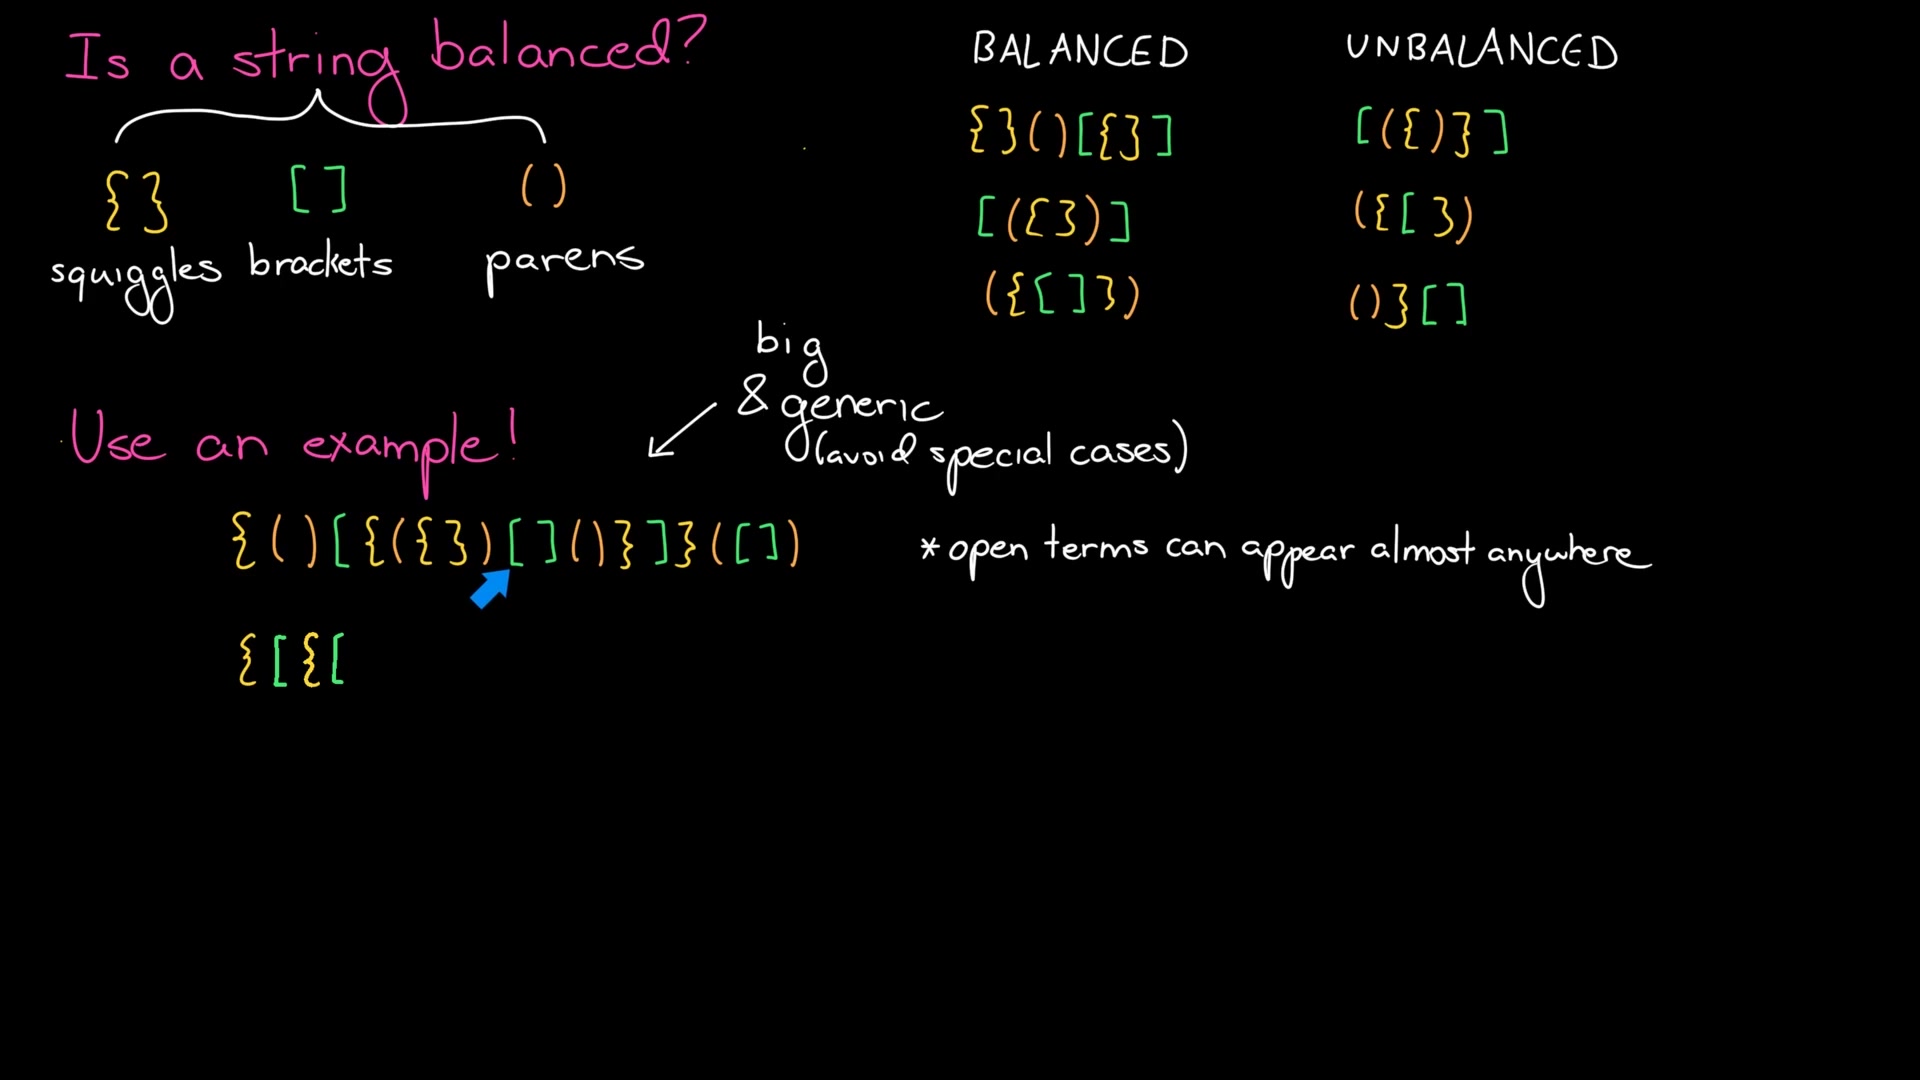 Is a string balanced?
{} [] ()
squiggles brackets parens
BALANCED
{}()[{}]
[({})]
({[]})
UNBALANCED
[({)}]
({[})
()}[]
big
& generic
(avoid special cases)
Use an example!
{()[{({})[]()}]}([])
* open terms can appear almost anywhere
{[{[